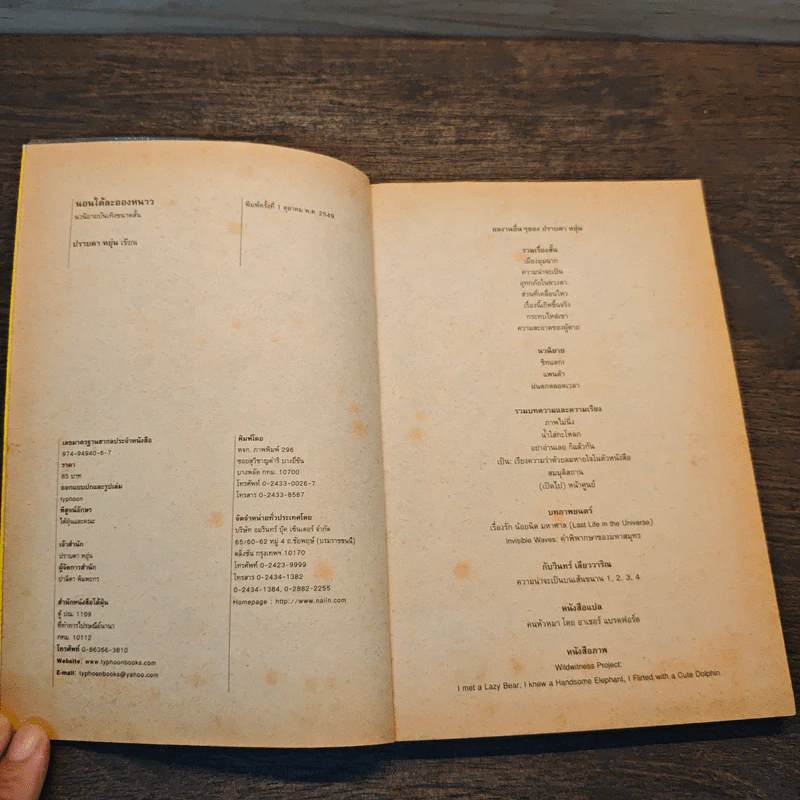 นอนใต้ละอองหนาว
นวนิยายบันเทิงขนาดสั้น
ปราบดา หยุ่น เขียน
พิมพ์ครั้งที่ 1 ตุลาคม พ.ศ. 2549
เลขมาตรฐานสากลประจำหนังสือ
974-94940-6-7
ราคา
85 บาท
ออกแบบปกและรูปเล่ม
typhoon
พิสูจน์อักษร
ไต้ฝุ่นและคณะ
เจ้าสำนัก
ปราบดา หยุ่น
ผู้จัดการสำนัก
ปานิตา พิมพะกร
สำนักหนังสือไต้ฝุ่น
ตู้ ปณ. 1109
ที่ทำการไปรษณีย์นานา
กทม. 10112
โทรศัพท์ 0-86366-3610
Website: www.typhoonbooks.com
E-mail: typhoonbooks@yahoo.com
พิมพ์โดย
หจก. ภาพพิมพ์ 296
ซอยสุวิชาญดำริ บางยี่ขัน
บางพลัด กทม. 10700
โทรศัพท์ 0-2433-0026-7
โทรสาร 0-2433-8587
จัดจำหน่ายทั่วประเทศโดย
บริษัท อมรินทร์ บุ๊ค เซ็นเตอร์ จำกัด
65/60-62 หมู่ 4 ถ.ชัยพฤกษ์ (บรมราชชนนี)
ตลิ่งชัน กรุงเทพฯ 10170
โทรศัพท์ 0-2423-9999
โทรสาร 0-2434-1382
0-2434-1384, 0-2882-2255
Homepage : http://www.naiin.com
ผลงานอื่น ๆของ ปราบดา หยุ่น
รวมเรื่องสั้น
เมืองมุมฉาก
ความน่าจะเป็น
อุทกภัยในดวงตา
ส่วนที่เคลื่อนไหว
เรื่องนี้เกิดขึ้นจริง
กระทบไหล่เขา
ความสะอาดของผู้ตาย
นวนิยาย
ชิทแตก!
แพนด้า
ฝนตกตลอดเวลา
รวมบทความและความเรียง
ภาพไม่นิ่ง
น้ำใส่กะโหลก
อย่าอ่านเลย ก็แล้วกัน
เป็น: เรียงความว่าด้วยลมหายใจในตัวหนังสือ
สมมุติสถาน
(เปิดไป) หน้าศูนย์
บทภาพยนตร์
เรื่องรัก น้อยนิด มหาศาล (Last Life in the Universe)
Invisible Waves: คำพิพากษาของมหาสมุทร
กับวินทร์ เลียววาริณ
ความน่าจะเป็นบนเส้นขนาน 1, 2, 3, 4
หนังสือแปล
คนหัวหมา โดย อาเธอร์ แบรดฟอร์ด
หนังสือภาพ
Wildwitness Project:
I met a Lazy Bear, I knew a Handsome Elephant, I Flirted with a Cute Dolphin